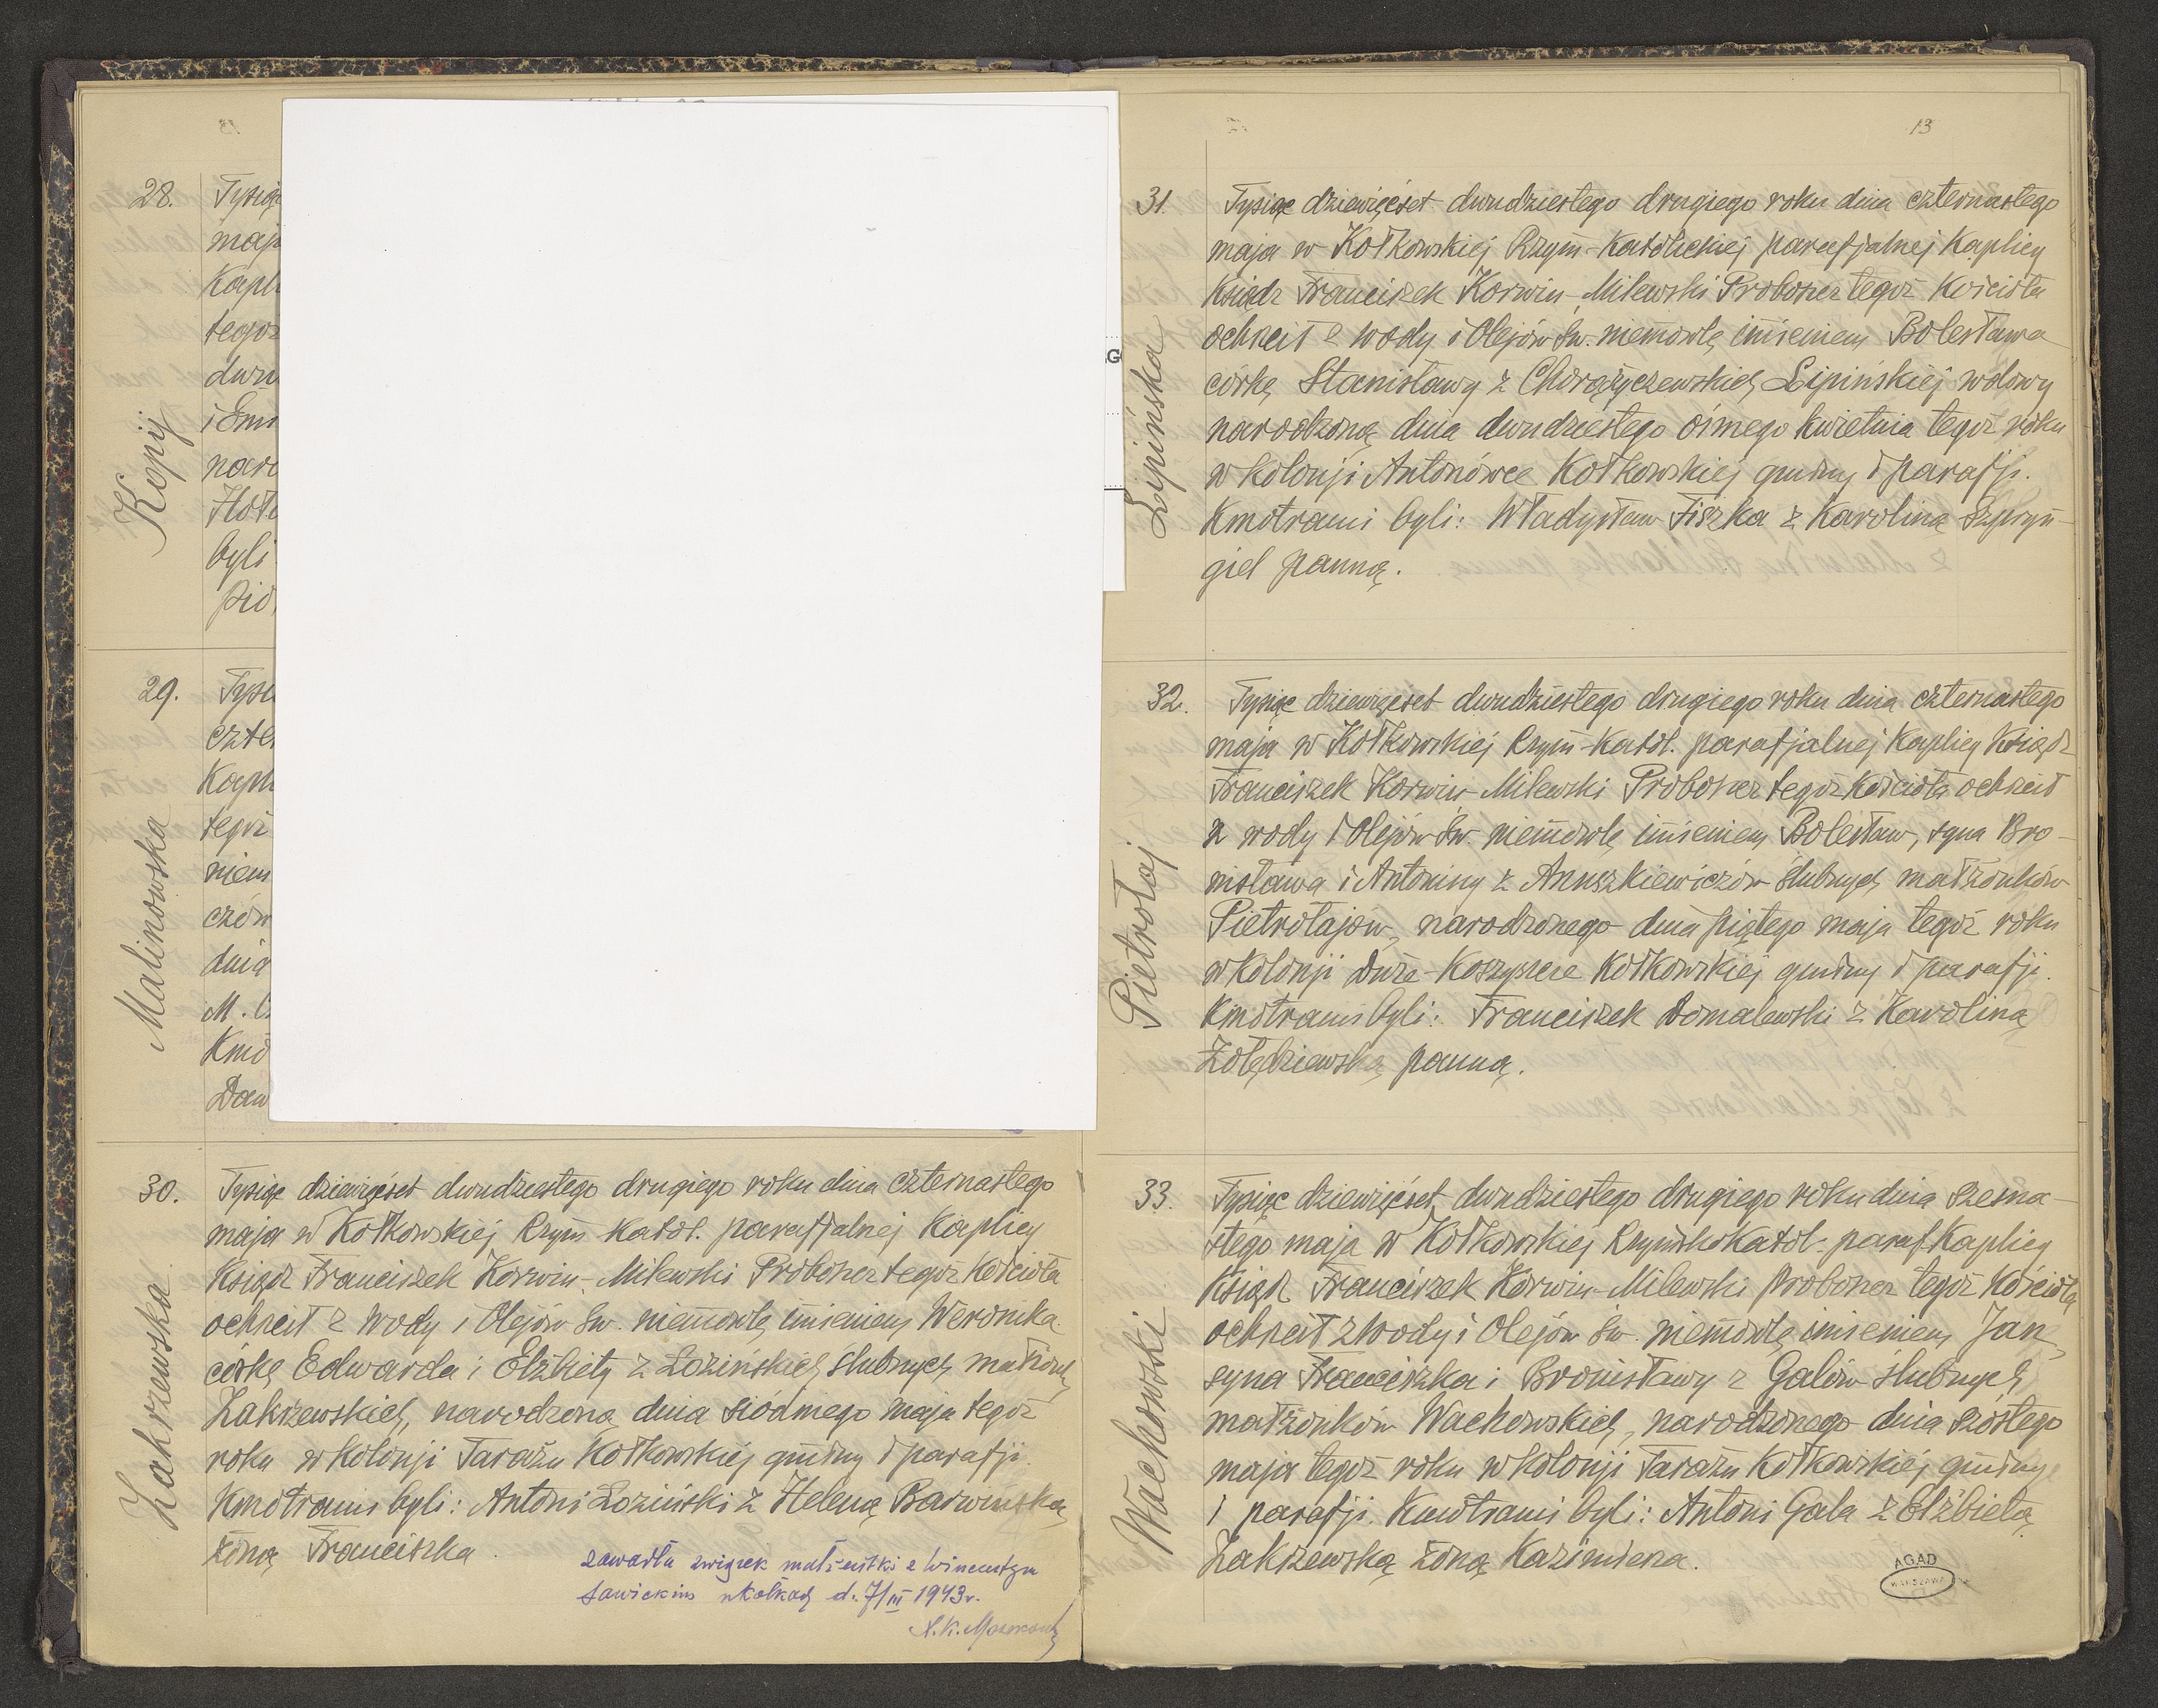 28.
Kopij
Tysiąc
maja
Kapli
tegoż
dwu
i Em
naro
byli
29.
Malinowska
Tysi
czter
Kapli
tegoż
niem
czów
dnia
Kmo
Daw
30.
Zakrzewska
Tysiąc dziewięćset dwudziestego drugiego roku dnia czternastego
maja w Kołkowskiej Rzym-Katol. parafjalnej Kaplicy
Ksiądz Franciszek Korwin-Milewski Proboszcz tegoż Kościoła
ochrcił z wody i Olejów Św. niemowlę imieniem Weronika
córkę Edwarda i Elżbiety z Łozińskich ślubnych małżonk.
Zakrzewskich, narodzoną dnia siódmego maja tegoż
roku w kolonji Tarażu Kołkowskiej gminy i parafji.
Kmotrami byli: Antoni Łoziński z Heleną Barwińską
żoną Franciszka.
zawarła związek małżeński z Wincentym
Sawickim w Kołkach d. 7/III 1943 r.
13
31.
Lipińska
Tysiąc dziewięćset dwudziestego drugiego roku dnia czternastego
maja w Kołkowskiej Rzym-Katolickiej parafjalnej Kaplicy
Ksiądz Franciszek Korwin-Milewski Proboszcz tegoż Kościoła
ochrcił z wody i Olejów Św. niemowlę imieniem Bolesława
córkę Stanisławy z Chorążyczewskich Lipińskiej wdowy
narodzoną dnia dwudziestego ósmego kwietnia tegoż roku
w kolonji Antonówce Kołkowskiej gminy i parafji.
Kmotrami byli: Władysław Fiszka z Karoliną Szpryn-
giel panną.
32.
Pietrołaj
Tysiąc dziewięćset dwudziestego drugiego roku dnia czternastego
maja w Kołkowskiej Rzym-Katol. parafjalnej Kaplicy Ksiądz
Franciszek Korwin-Milewski Proboszcz tegoż Kościoła ochrcił
z wody i Olejów Św. niemowlę imieniem Bolesław, syna Bro-
nisława i Antoniny z Anuszkiewiczów ślubnych małżonków
Pietrołajów, narodzonego dnia piątego maja tegoż roku
w kolonji Duże-Koszyszcze Kołkowskiej gminy i parafji.
Kmotrami byli: Franciszek Domalewski z Karoliną
Żołędziewską panną.
33.
Wachowski
Tysiąc dziewięćset dwudziestego drugiego roku dnia szesna-
stego maja w Kołkowskiej Rzymsko Katol. paraf. Kaplicy
Ksiądz Franciszek Korwin-Milewski Proboszcz tegoż Kościoła
ochrcił z wody i Olejów Św. niemowlę imieniem Jan,
syna Franciszka i Bronisławy z Galów ślubnych
małżonków Wachowskich, narodzonego dnia szóstego
maja tegoż roku w kolonji Tarażu Kołkowskiej gminy
i parafji. Kmotrami byli: Antoni Gala z Elżbietą
Zakrzewską żoną Kazimierza.
AGAD
WARSZAWA